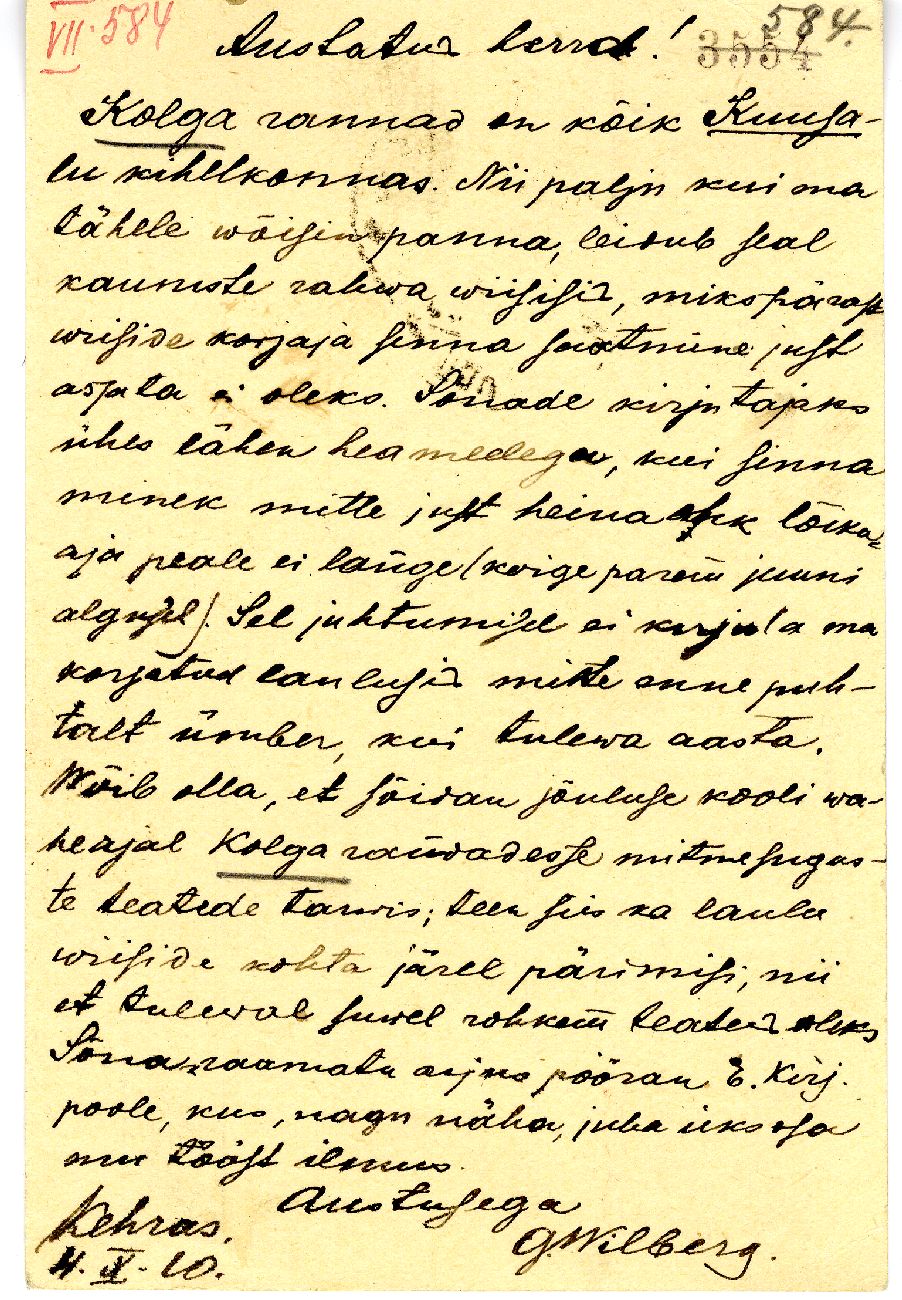 VII. 584
584.
3554
Austatud herra!
Kolga rannad on kõik Kuusa-
lu kihelkonnas. Nii palju kui ma
tähele wõisin panna, leidub seal
kauniste rahwa wiisisid, mikspärast
wiiside korjaja sinna saatmine just
asjata ei oleks. Sõnade kirjutajaks
ühes lähen heameelega, kui sinna
minek mitte just heina ehk lõikus-
aja peale ei lange (kõige parem juuni
algusel). Sel juhtumisel ei kirjuta ma
korjatud laulusid mitte enne puh-
talt ümber, kui tulewa aasta.
Wõib olla, et sõidan jõuluse kooli wa-
heajal Kolga randadesse mitmesugus-
te teatede tarwis; teen siis ka laulu
wiiside kohta järel pärimisi, nii
et tulewal suwel rohkem teateid oleks
Sõnaraamatu asjus pööran E. Kirj.
poole, kus, nagu näha, juba üks osa
mu tööst ilmus.
Austusega
Kehras. G. Wilberg.
4. X. 10.